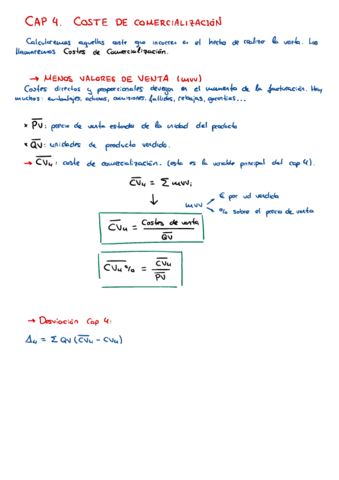 CAP 4. COSTE DE COMERCIALIZACIÓN
Calcularemos aquellos coste que incurren en el hecho de realizar la venta. Los
llamaremos Costes de Comercialización.
→ MENOS VALORES DE VENTA (mvv)
Costes directos y proporcionales devengan en el momento de la facturación. Hay
muchos: embalajes, aduanas, comisiones, fallidos, rebajas, garantías...
× P̅V̅: precio de venta estándar de la unidad del producto
× Q̅V̅: unidades de producto vendido.
→ C̅V̅u: coste de comercialización. (esta es la variable principal del cap 4).
C̅V̅u = Σ mvvi
mvv
€ por ud vendida
% sobre el precio de venta
C̅V̅u = Costes de venta / Q̅V̅
C̅V̅u% = C̅V̅u / P̅V̅
→ Desviación Cap 4:
Δ4 = Σ QV (C̅V̅u - CVu)